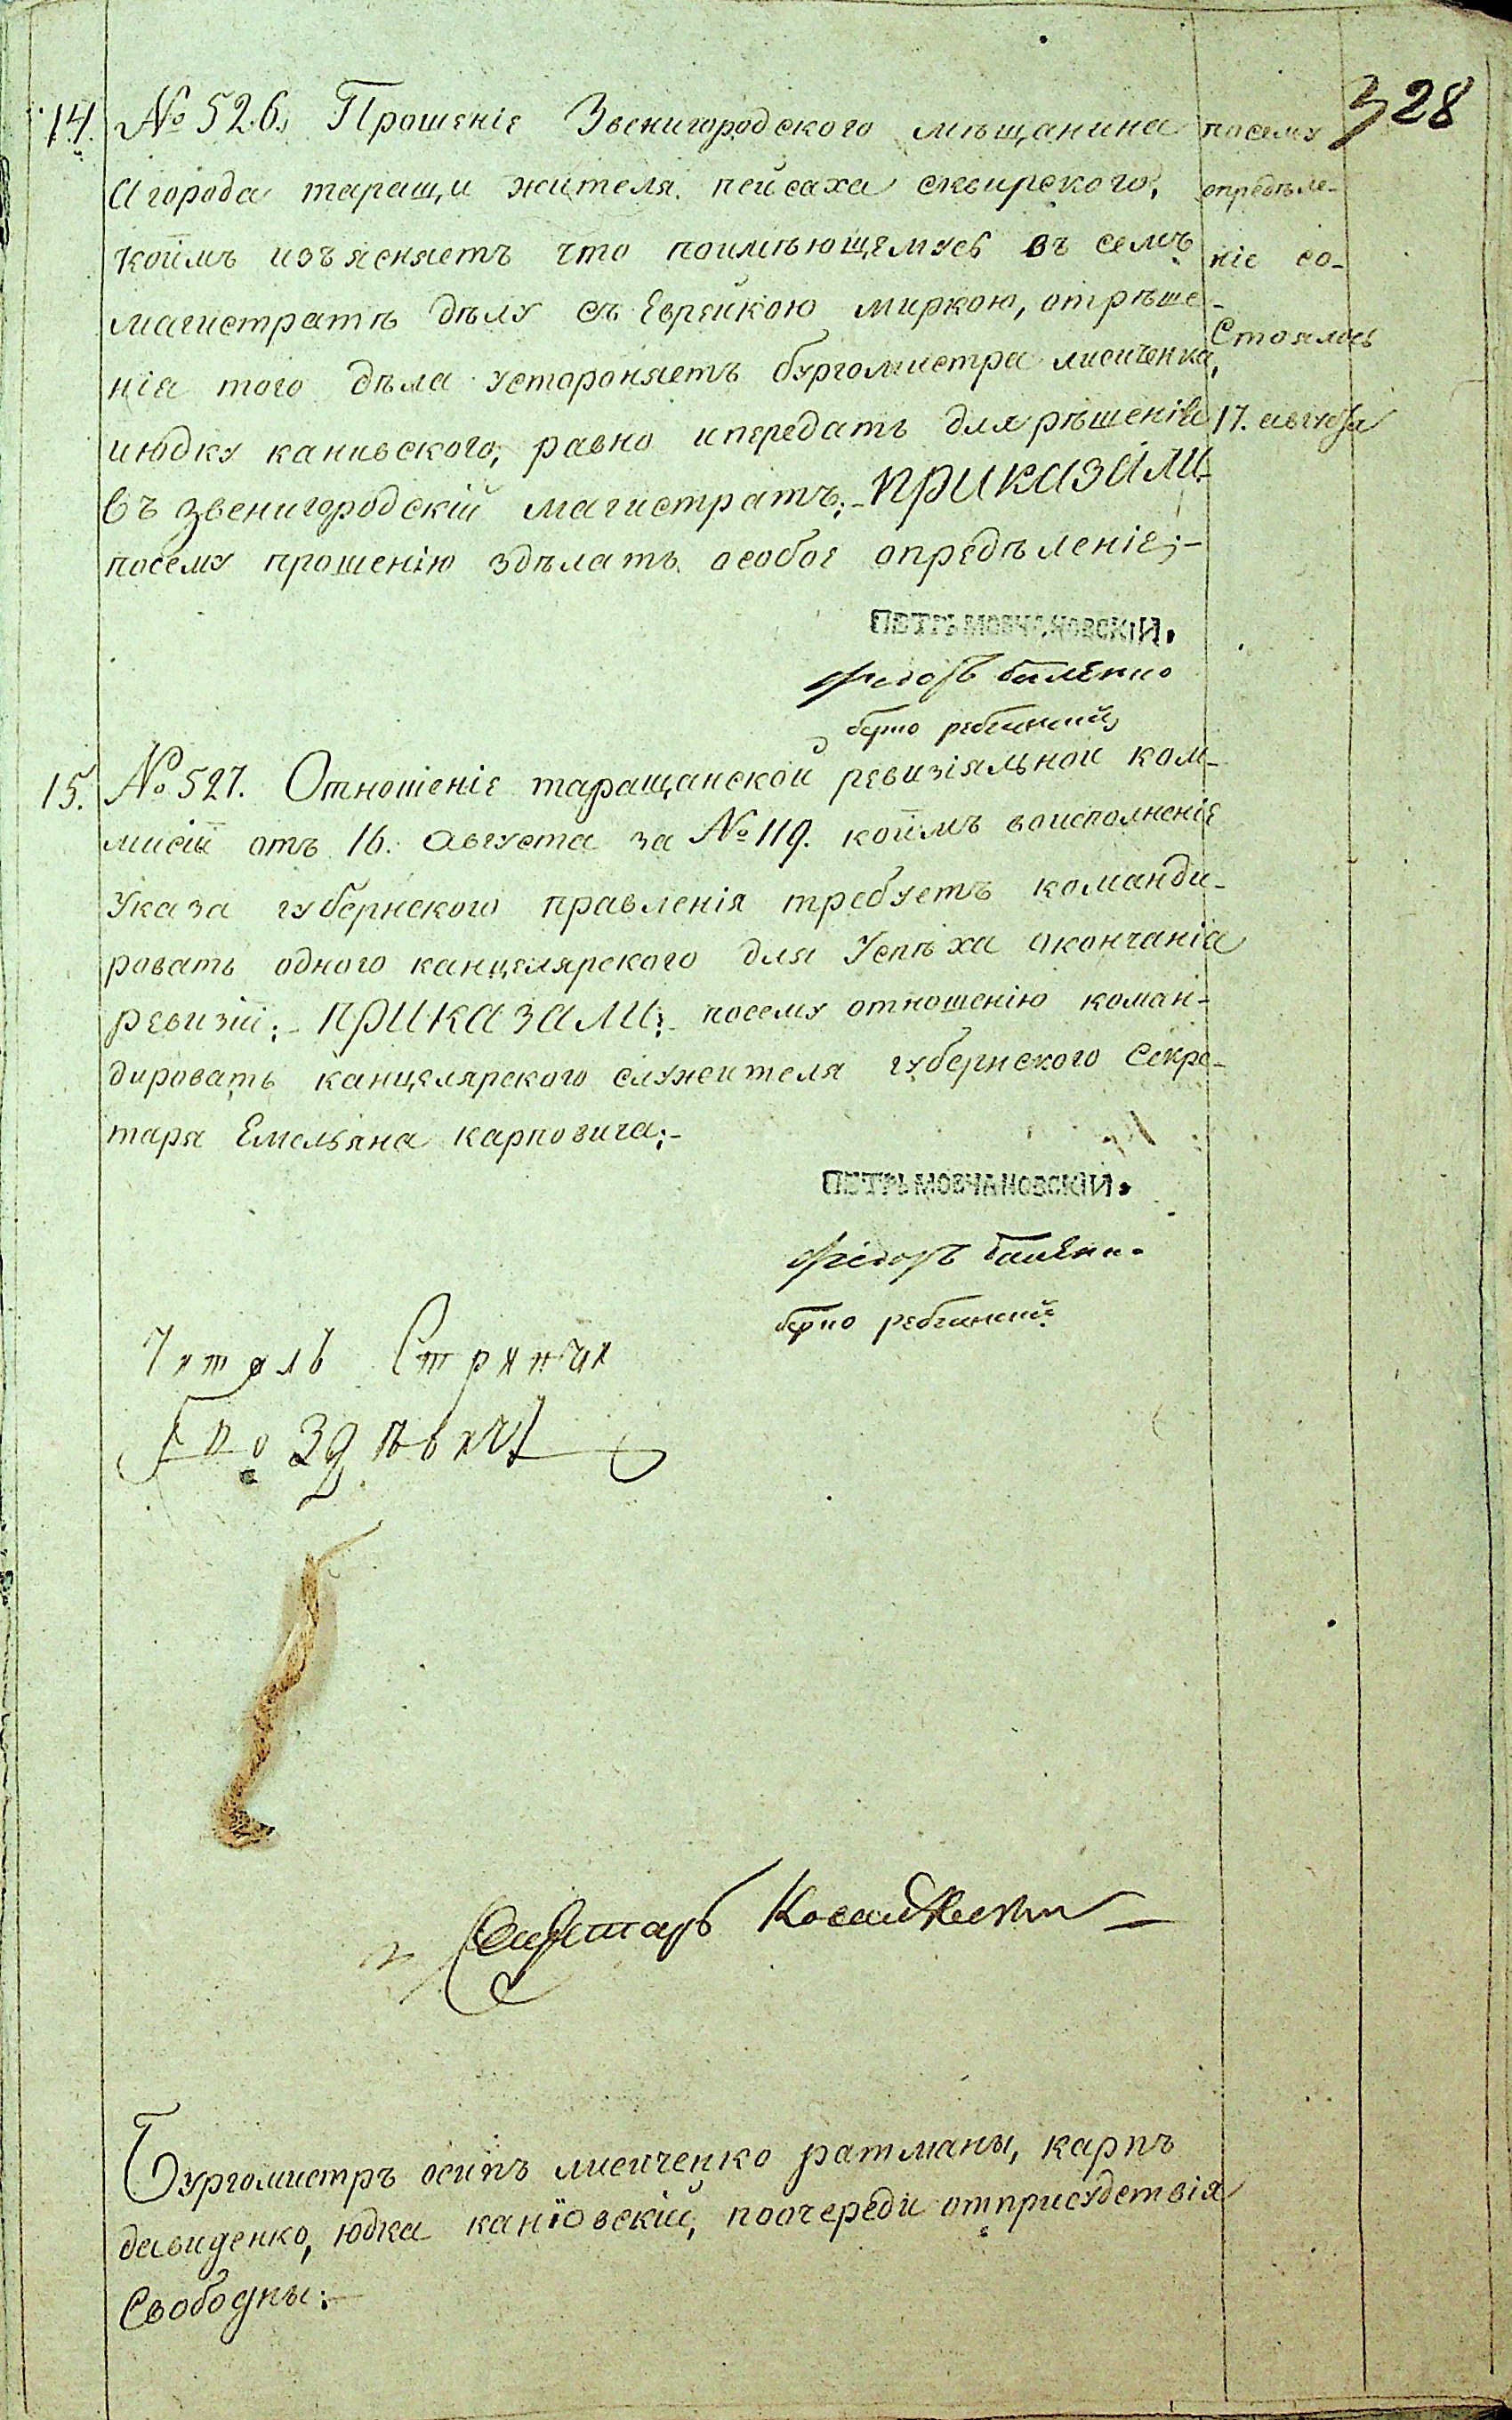 328
14. № 526. Прошеніе Звенигородского мѣщанина
а города таращи жителя пейсаха сквирского,
коимъ изъясняетъ что поимѣющемусь въ семъ
магистратѣ дѣлу съ Еврейкою миркою, отрѣше-
нія того дѣла устороняетъ бургомистра лисиченка,
июдку канивского, равно ипередать для рѣшенія
въ звенигородскій магистратъ;- приказали
посему прошенію здѣлать особое опредѣленіе;-
посему
опредѣле-
ніе со-
стоялось
17. августа
Петръ Мовчановский.
Фіодоръ
берко
15. № 527. Отношеніе таращанской ревизіяльной ком-
мисіи отъ 16. Августа за № 119. коимъ воисполненіе
Указа губернского правленія требуетъ команди-
ровать одного канцелярского для Успѣха окончанія
ревизіи;- приказали; посему отношенію коман-
дировать канцелярского служителя губернского Секре-
таря Емельяна карповича;-
Петръ Мовчановский.
Фіодоръ
берко
Читалъ Стряпчи
Секретарь
Бургомистръ осипъ лисиченко ратманы, карпъ
давиденко, юдка каніовскій, поочереди отприсудствія
Свободны;-